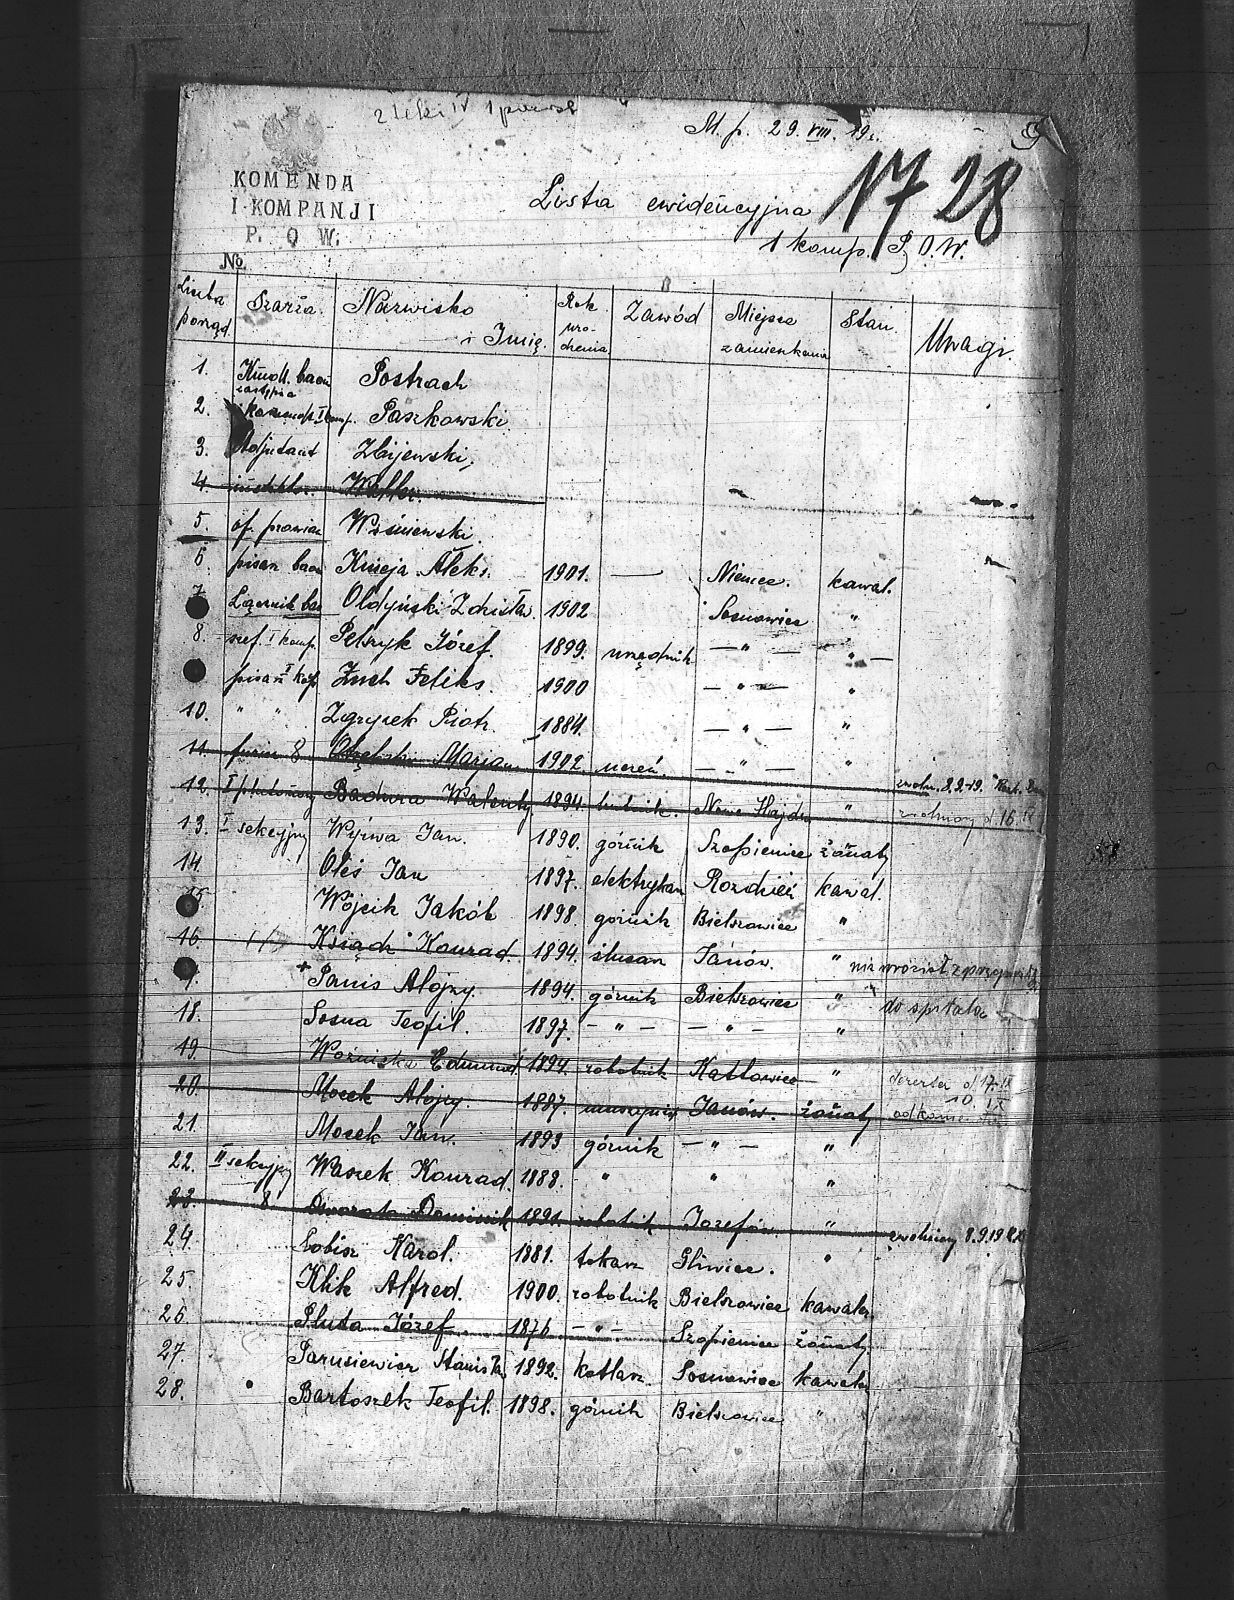 M. p. 29. VIII. 19 r.
KOMENDA
I. KOMPANJI
P. O W.
No.
17 28
Lista ewidencyjna
1 komp. P. O. W.
Liczba porząd. Szarża. Nazwisko i Imię. Rok uro- dzenia. Zawód Miejsce zamieszkania Stan. Uwagi.
1. Kmdt. baon Postrach
2. zastępca I komp. Paszkowski
3. Adjutant Zbijewski
4.
5. of. prowian Wiśniewski.
6 pisarz baon Kmieja Aleks. 1901. — Niemce. kawal.
7 Łącznik bao Oldyński Zdzisław. 1902 Sosnowiec "
8. szef. I komp. Petryk Józef. 1899. urzędnik — " — — " —
pisarz I kop Żuch Feliks. 1900 — " — "
10. " " Zgryzek Piotr. 1884. — " — "
11. furier 8 Marjan 1902. uczeń. — " — " zwoln. 8.9.19.
12. I plutonowy Badura Walenty. 1894. hutnik. Nowe Hajdu " zwolniony d. 16. IX
13. I sekcyjny Wyrwa Jan. 1890. górnik Szopienice żonaty
14. Oleś Jan 1897. elektrykan Rozdzień kawal.
15 Wójcik Jakób 1898. górnik Bielszowice "
16. Ksiądz Konrad. 1894. ślusarz Janów. " nie wrócił z przepustki
+ Panis Alojzy. 1894. górnik Bielszowice " do szpitala
18. Sosna Teofil. 1897. — " — — " — "
19. Woźniczka Edmund 1894. robotnik Katowice "
20. Mocek Alojzy. 1887. maszynis Janów. żonaty
21. Mocek Jan. 1893 górnik — " — "
22. II sekcyjny Waszek Konrad. 1888. " " "
23. 8 Dworok Dominik 1891. robotnik Józefów " zwolniony 8.9.19
24. Sobisz Karol. 1881. tokarz Gliwice. "
25 Klik Alfred. 1900. robotnik Bielszowice kawaler
26 Pluta Józef. 1876. — " — Szopienice żonaty
27. Parusiewicz Stanisław 1892. kotlarz. Sosnowiec kawaler
28. Bartoszek Teofil. 1898. górnik Bielszowice "